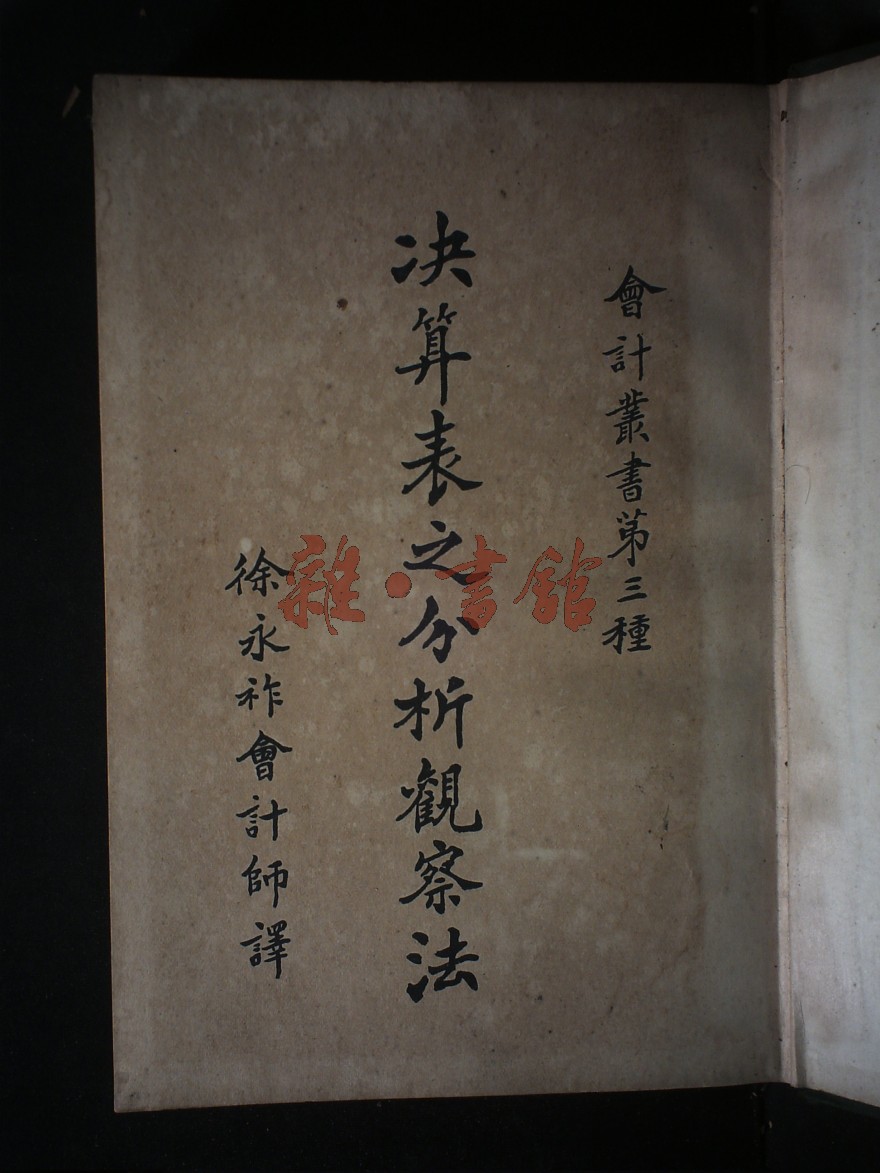 會計叢書第三種
决算表之分析觀察法
徐永祚會計師譯
雜·書館